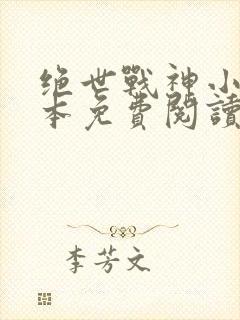 绝世戰神小
本免費閱讀
李芳文